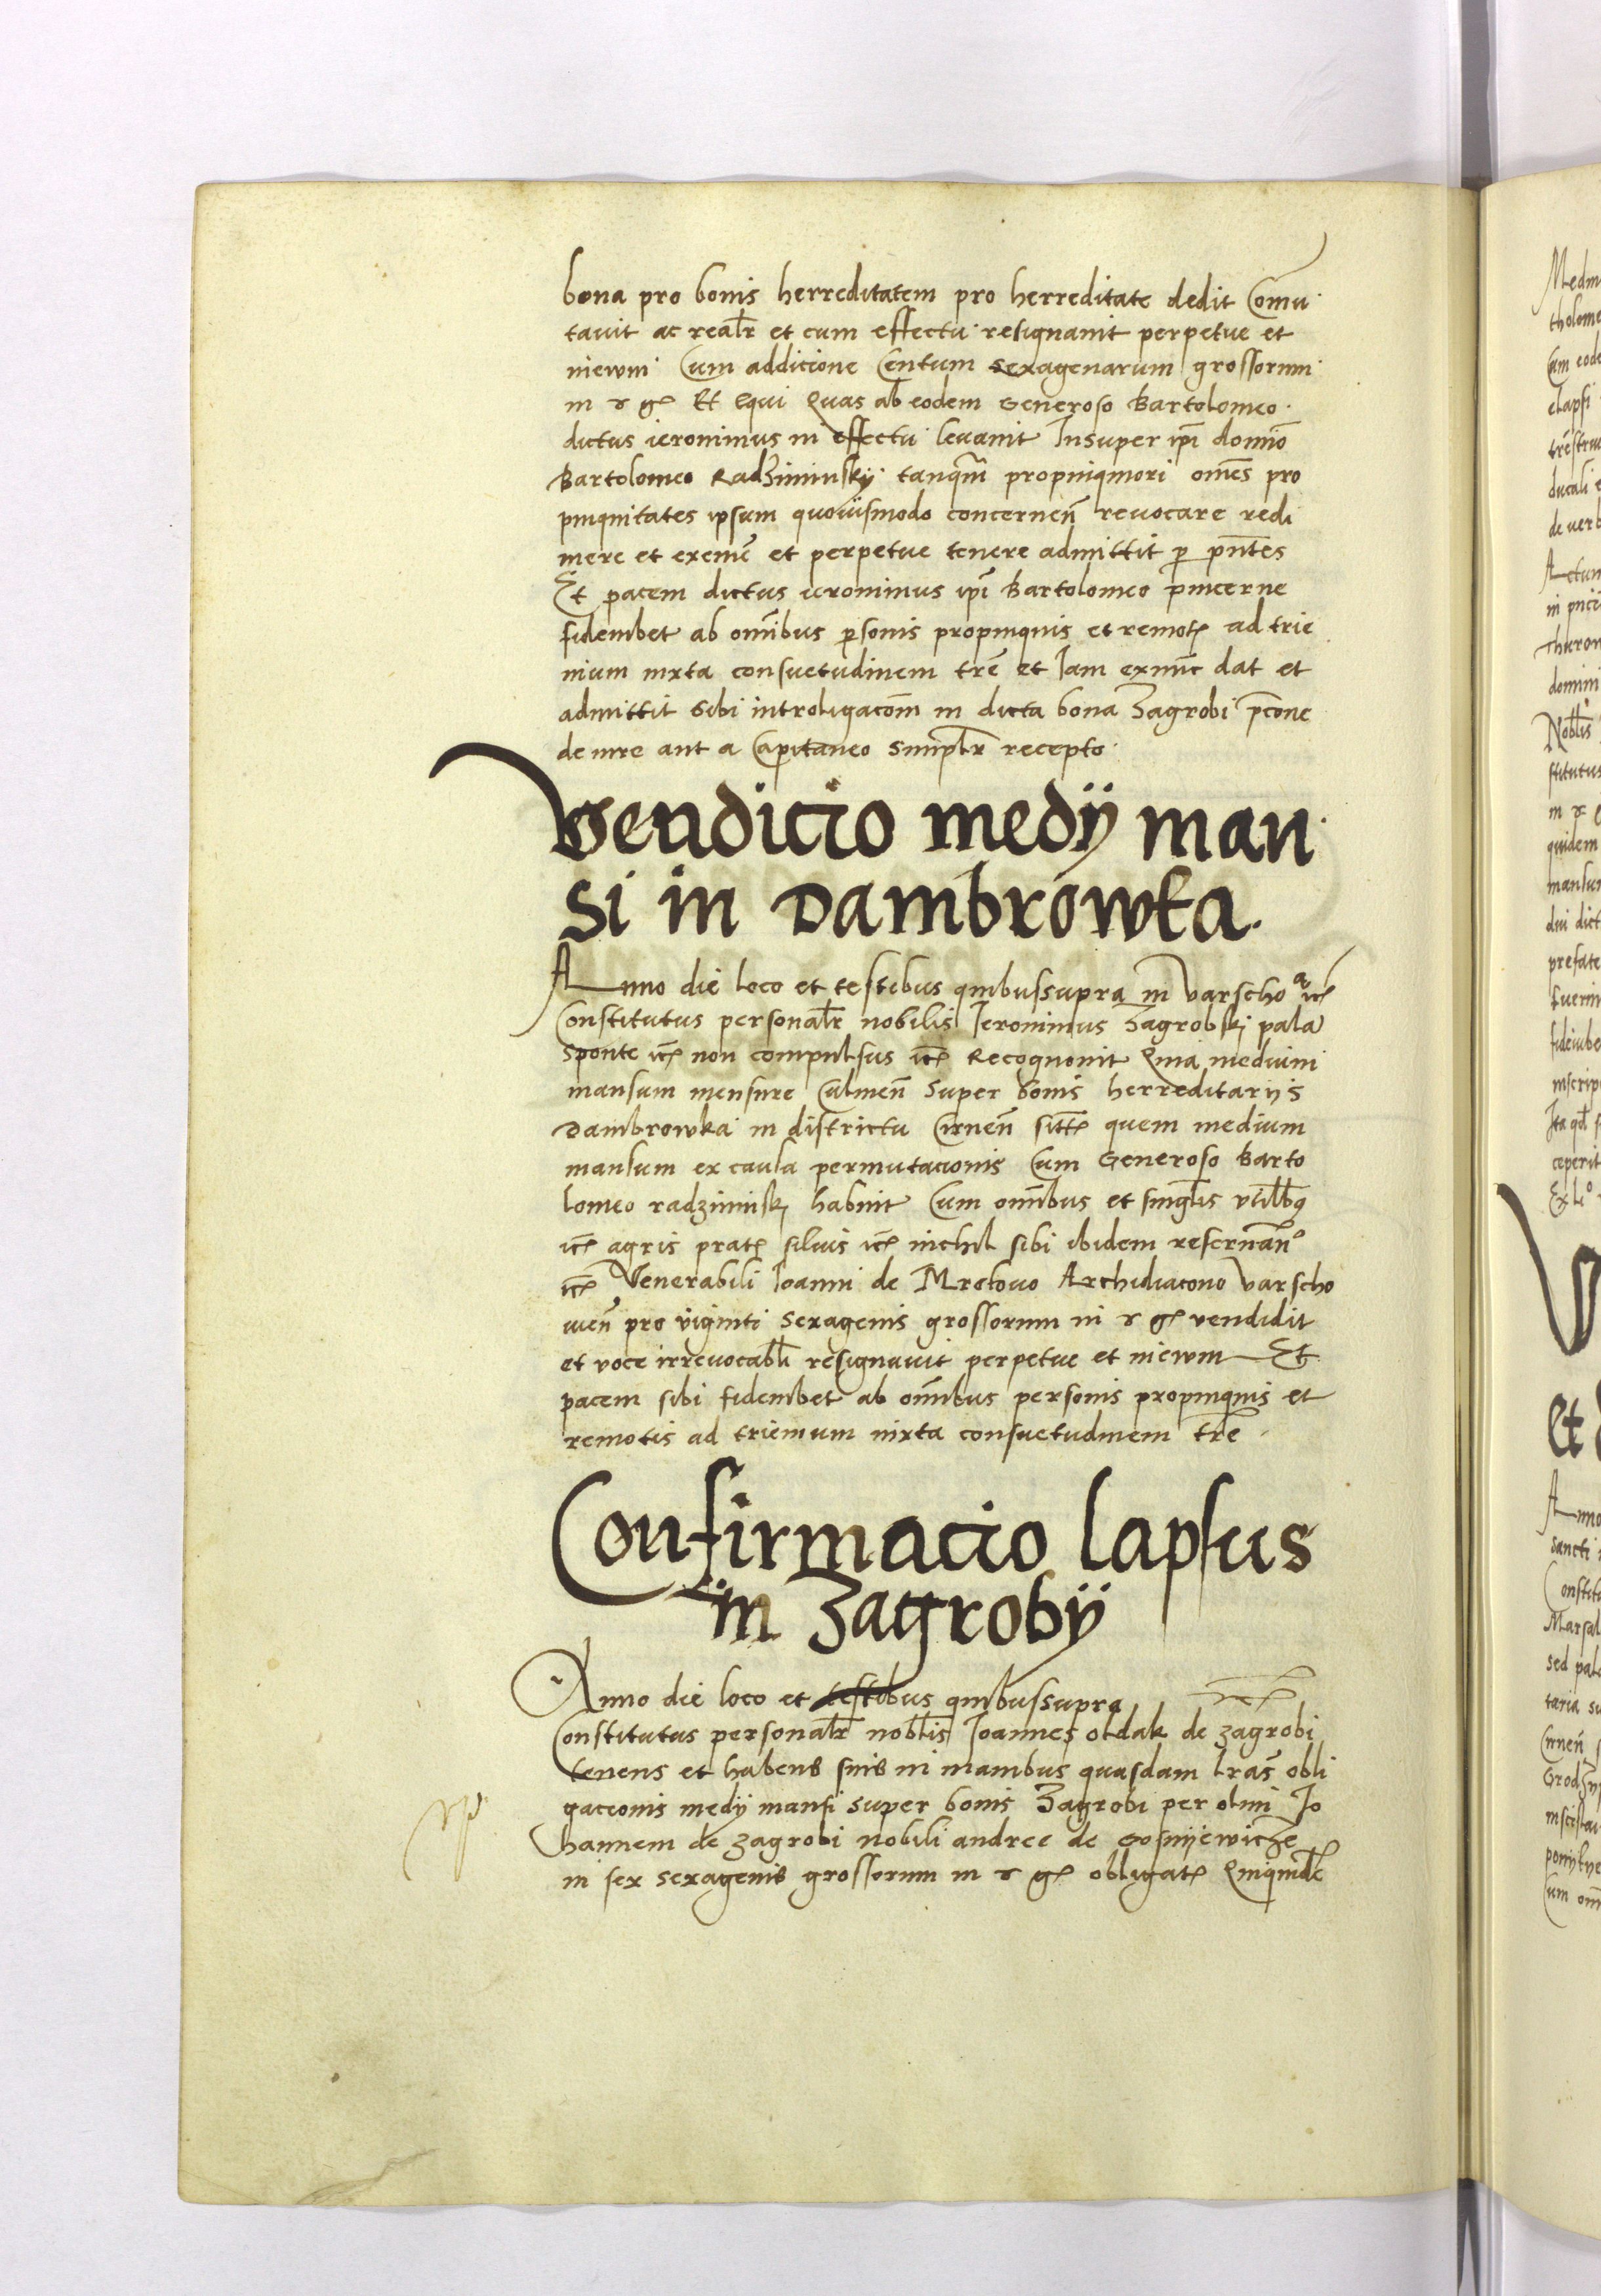 bona pro bonis herreditatem pro herreditate dedit Comu
tauit ac realr̄ et cum effectu resignauit perpetue et
inewm Cum addicione Centum sexagenarum grossorum
in r gͫ Et Equi Quas ab eodem Generoso Bartolomeo
dictus ieronimus in effectu leuauit Insuper ip̄i domīo
Bartolomeo Radziminsky tanqm̄ propinqiuori om̄es pro
pinquitates ipsum quouismodo concernen̄ reuocare redi
mere et exeme᷑ et perpetue tenere admittit p pn̄tes
Et pacem dictus ieronimus ip̄i Bartolomeo pincerne
fideiubet ab om̄ibus psonis propinquis et remotꝭ ad trie
nium iuxta consuetudinem trē et Iam exnūc dat et
admittit sibi introligacōm in dicta bona Zagrobi p̄cone
de iure aut a Capitaneo simplr̄ recepto
Vendicio medij man
si in Dambrowka.
Anno die loco et testibus quibussupra in Varscho ᵃ
Constitutus personalr̄ nobilis Ieronimus Zagrobski pala
sponte ic̄ꝭ non compulsus ic̄ꝭ Recognouit Quia medium
mansum mensure Culmen̄ super bonis herreditarijs
Dambrowka in districtu Cirnen̄ sitt̄ꝭ quem medium
mansum ex causa permutacionis Cum Generoso Barto
lomeo radziminskj habuit Cum om̄ibus et singl̄is vtilb̄ꝗ
ic̄ꝭ agris pratꝭ siluis ic̄ꝭ nichil sibi ibidem reseruan̄º
ic̄ꝭ Venerabili Ioanni de Mrokouo Archidiacono Varscho
uien̄ pro viginti sexagenis grossorum in r gꝭ vendidit
et voce irreuocabl̄i resignauit perpetue et inewm Et
pacem sibi fideiubet ab om̄ibus personis propinquis et
remotis ad trienium iuxta consuetudinem trē
Confirmacio lapsus
in Zagrobij
Anno die loco et testibus quibussupra
Constitutus personalr̄ nobl̄is Ioannes oldak de zagrobi
tenens et habens suis in manibus quasdam lrās obli
gacionis medij mansi super bonis Zagrobi per olim Io
hannem de zagrobi nobili andree de Gosnijewicze
in sex sexagenis grossorum in r gꝭ obligatꝭ Quiquidē